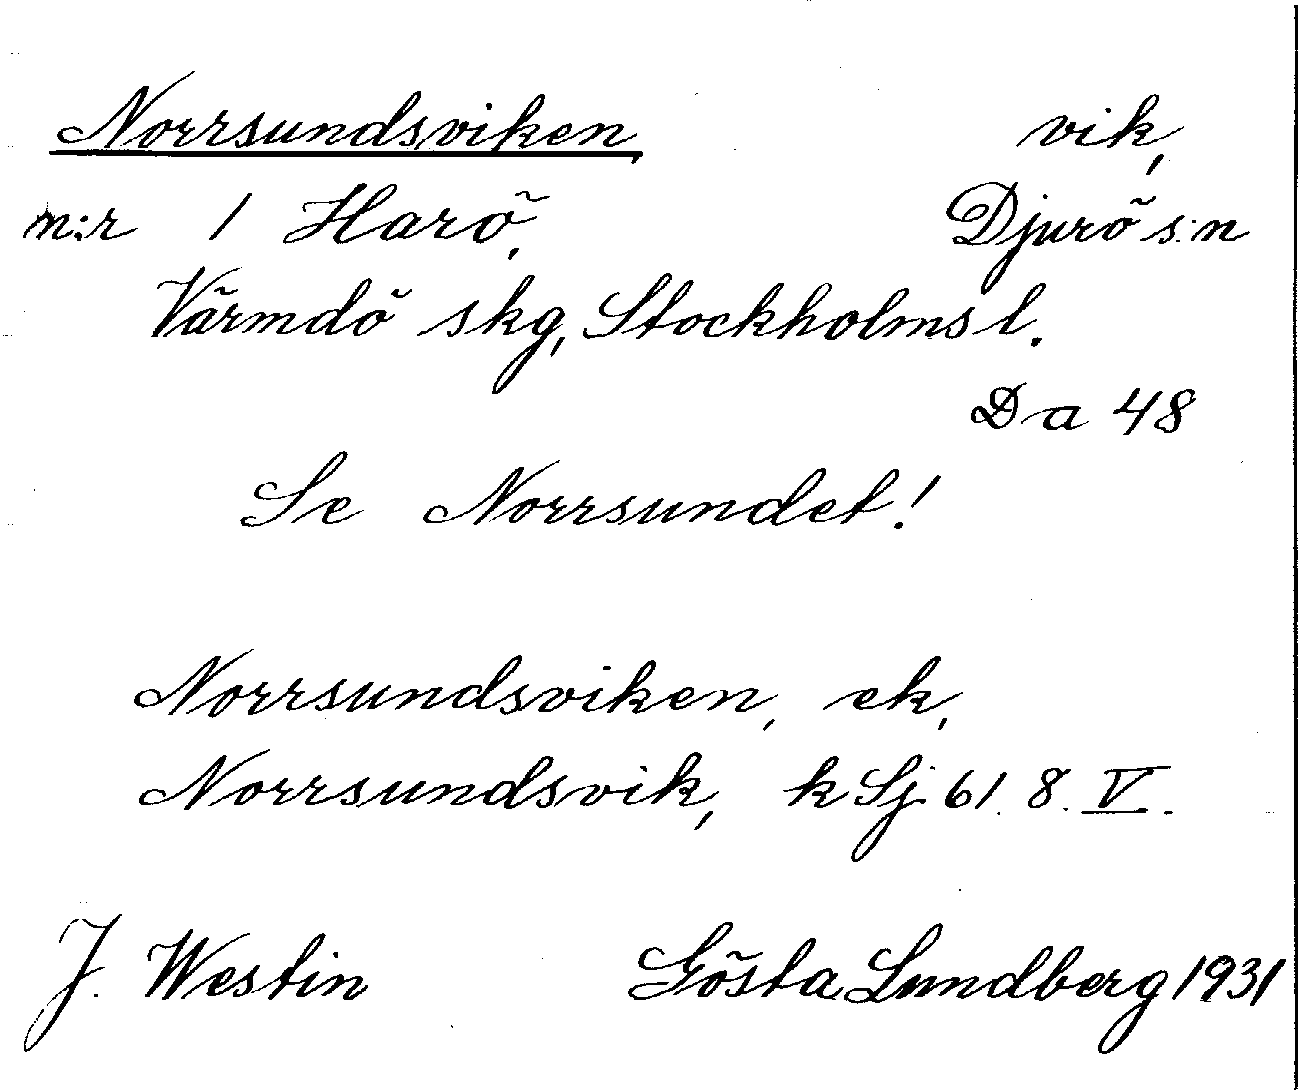 Norrsundsviken, vik,
n:r 1 Harö, Djurö s:n
Värmdö skg, Stockholms l.
Da 48
Se Norrsundet!
Norrsundsviken, ek,
Norrsundsvik, k Sj. 61. 8. V.
J. Westin Gösta Lundberg 1931